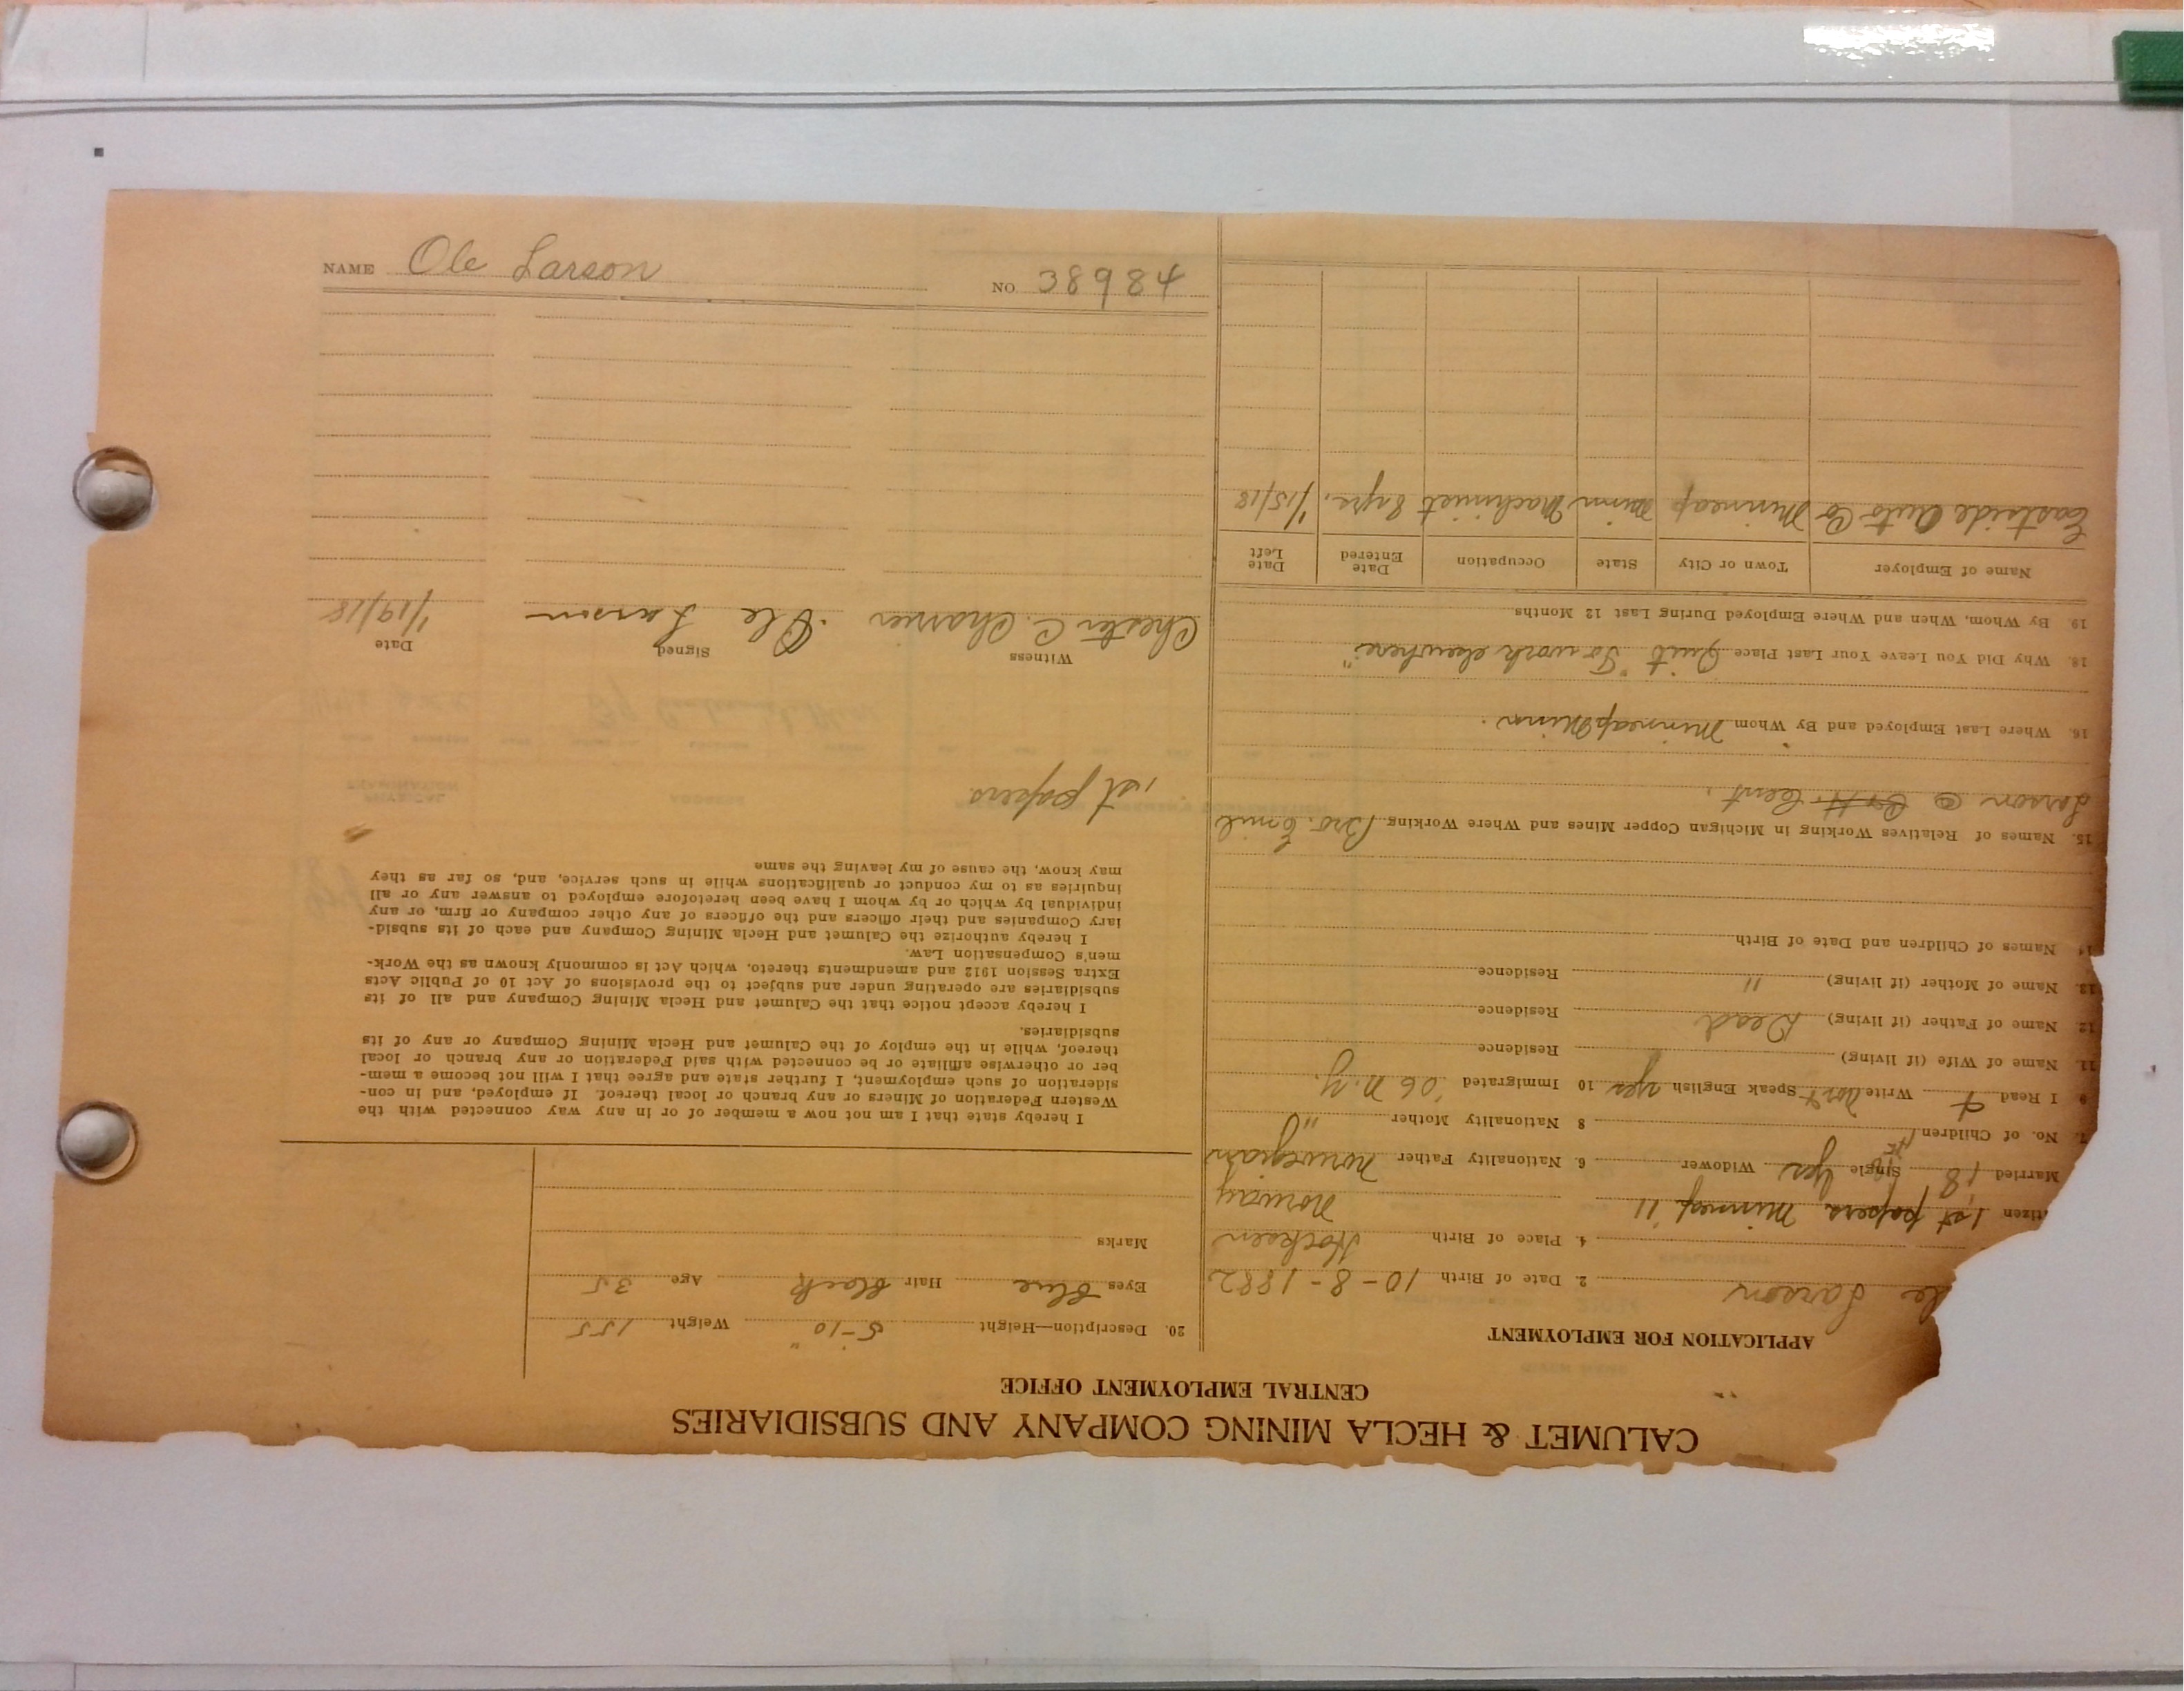 CALUMET & HECLA MINING COMPANY AND SUBSIDIARIES
CENTRAL EMPLOYMENT OFFICE
APPLICATION FOR EMPLOYMENT
le Larson 2. Date of Birth 10-8-1882
4. Place of Birth
tizen 1st papers Minneap '11 Norway
Married Single yes Widower 6. Nationality Father Norwegian
7. No. of Children 8 Nationality Mother "
9. I Read + Write Don't Speak English yes 10 Immigrated '06 N.Y.
11. Name of Wife (if living) Residence
12. Name of Father (if living) Dead Residence
13. Name of Mother (if living) " Residence
14. Names of Children and Date of Birth
15. Names of Relatives Working in Michigan Copper Mines and Where Working Bro. Emil
Larson @ Cent.
16. Where Last Employed and By Whom Minneap Minn.
18. Why Did You Leave Your Last Place Quit "To work elsewhere"
19. By Whom, When and Where Employed During Last 12 Months
Name of Employer Town or City State Occupation Date Entered Date Left
Eastside Auto Co Minneap Minn Machinist 8 yrs. 1/15/18
20. Description—Height 5-10" Weight 155
Eyes Blue Hair Black Age 35
Marks
I hereby state that I am not now a member of or in any way connected with the
Western Federation of Miners or any branch or local thereof. If employed, and in con-
sideration of such employment, I further state and agree that I will not become a mem-
ber or otherwise affiliate or be connected with said Federation or any branch or local
thereof, while in the employ of the Calumet and Hecla Mining Company or any of its
subsidiaries.
I hereby accept notice that the Calumet and Hecla Mining Company and all of its
subsidiaries are operating under and subject to the provisions of Act 10 of Public Acts
Extra Session 1912 and amendments thereto, which Act is commonly known as the Work-
men's Compensation Law.
I hereby authorize the Calumet and Hecla Mining Company and each of its subsid-
iary Companies and their officers and the officers of any other company or firm, or any
individual by which or by whom I have been heretofore employed to answer any or all
inquiries as to my conduct or qualifications while in such service, and, so far as they
may know, the cause of my leaving the same
1st papers
Witness Signed Date
Chester C. Ole Larson 1/19/18
NAME Ole Larson NO 38984